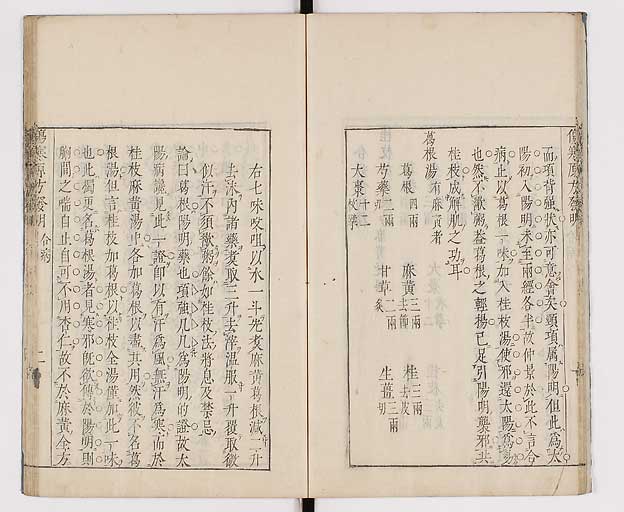 而項背強状亦可意會矣頸項属陽明但此為太
陽初入陽明未至兩經各半故仲景於此不言合
病止以葛根一味加入桂枝湯使邪還太陽為易
也然不歠粥葢葛根之輕揚已足引陽明襲邪共
桂枝成解肌之功耳
葛根湯有麻黃者
葛根四兩 麻黃三兩去節 桂三兩去皮
芍藥二兩 甘草二兩炙 生薑三兩切
大棗十二枚擘
右七味㕮咀以水一斗先煮麻黃葛根減二升
去沫内諸藥煮取三升去滓溫服一升覆取微
似汗不須歠粥餘如桂枝法將息及禁忌
論曰葛根陽明藥也項強几几陽明的證故太
陽病纔見此一證即以有汗為風無汗為寒而於
桂枝麻黃湯中各加葛根以盡其用然彼不名葛
根湯但言桂枝加葛根以桂枝全湯僅加此一味
也此獨更名葛根湯者見寒邪既欲傳於陽明則
胸間之喘自止自可不用杏仁故不於麻黃全方
傷寒 方發明 合病 二